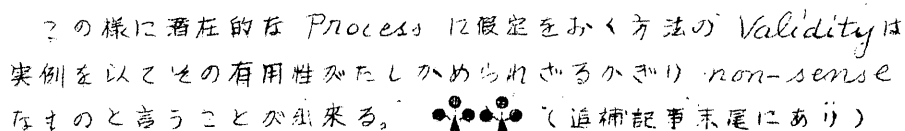 この様に潜在的な Process に假定をおく方法の Validityは
実例を以てその有用性がたしかめられざるかぎり non-sense
なものと言うことが出来る。 (追補記事末尾にあり)